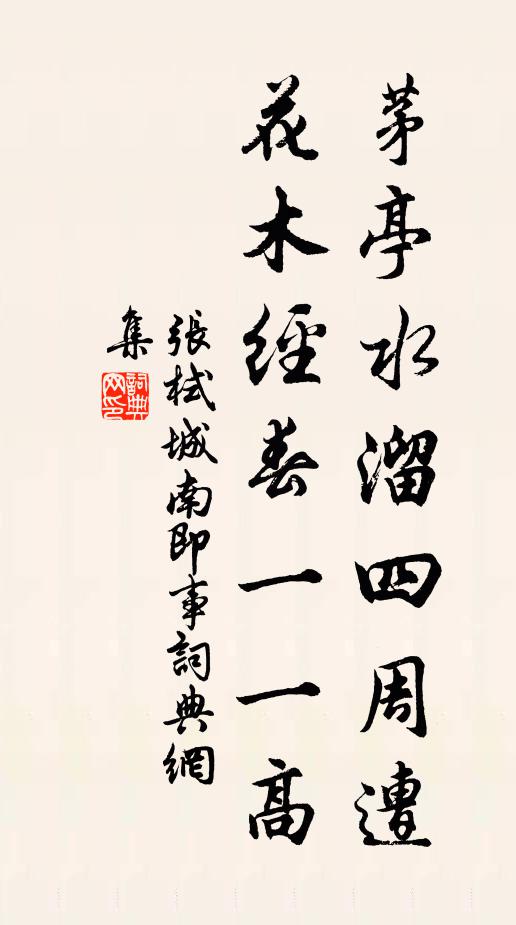 茅亭水溜四周遭
花木經春一一高
張栻城南即事詞典網
集
詞典网印